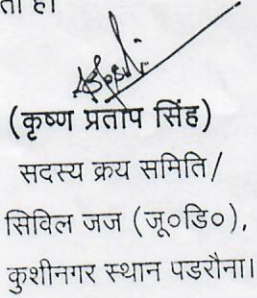 (कृष्ण प्रताप सिंह)
सदस्य क्रय समिति/
सिविल जज (जू०डि०),
कुशीनगर स्थान पडरौना।